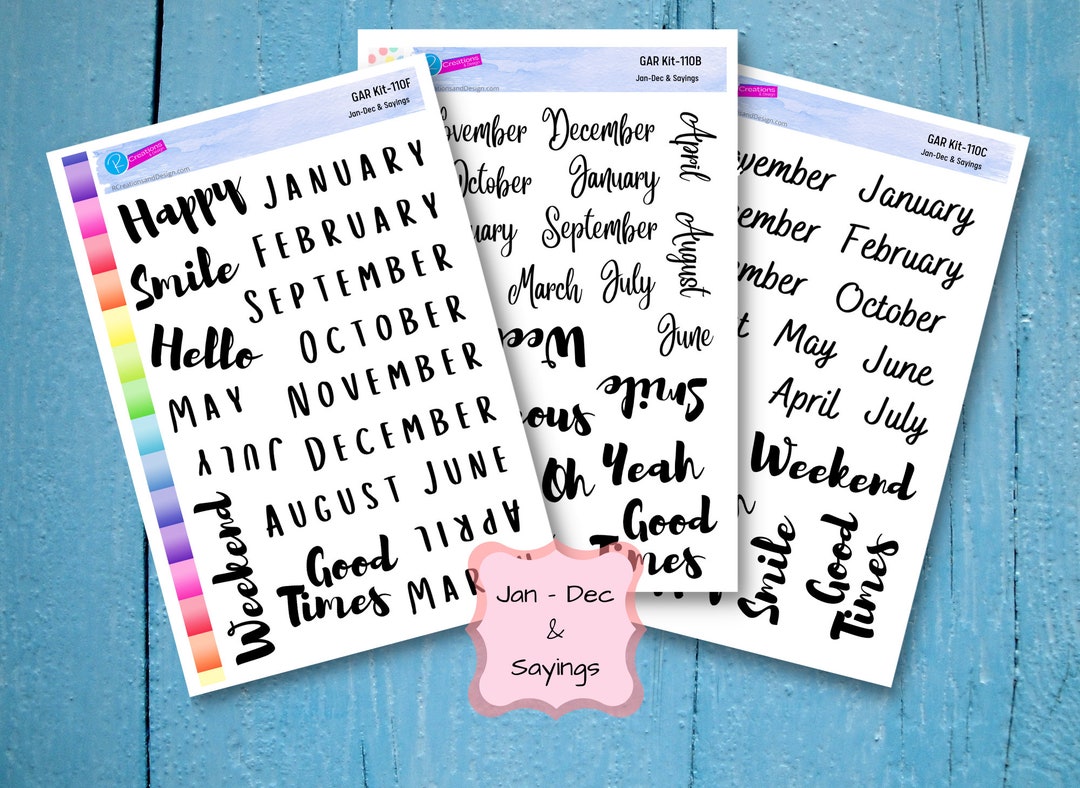 GAR Kit-110F
Jan-Dec & Sayings
R Creations
& Design
RCreationsandDesign.com
Happy
JANUARY
Smile
FEBRUARY
SEPTEMBER
Hello
OCTOBER
MAY
NOVEMBER
JULY
DECEMBER
AUGUST
JUNE
Weekend
APRIL
Good
Times
MAR
GAR Kit-110B
Jan-Dec & Sayings
R Creations
& Design
CreationsandDesign.com
ovember
December
April
October
January
uary
September
August
March
July
June
Wee
Smile
ous
Oh
Yeah
Good
Times
GAR Kit-110C
Jan-Dec & Sayings
Creations
& Design
andDesign.com
vember
January
ember
February
mber
October
t
May
June
April
July
Weekend
Smile
Good
Times
Jan - Dec
&
Sayings